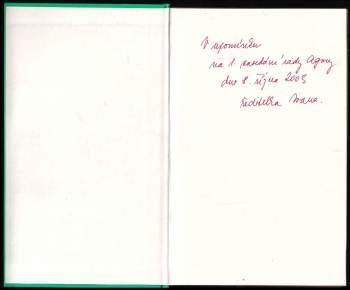 V upomínku
na 1. zasedání rady Agony
dne 8. října 2003
ředitelka Ivana.